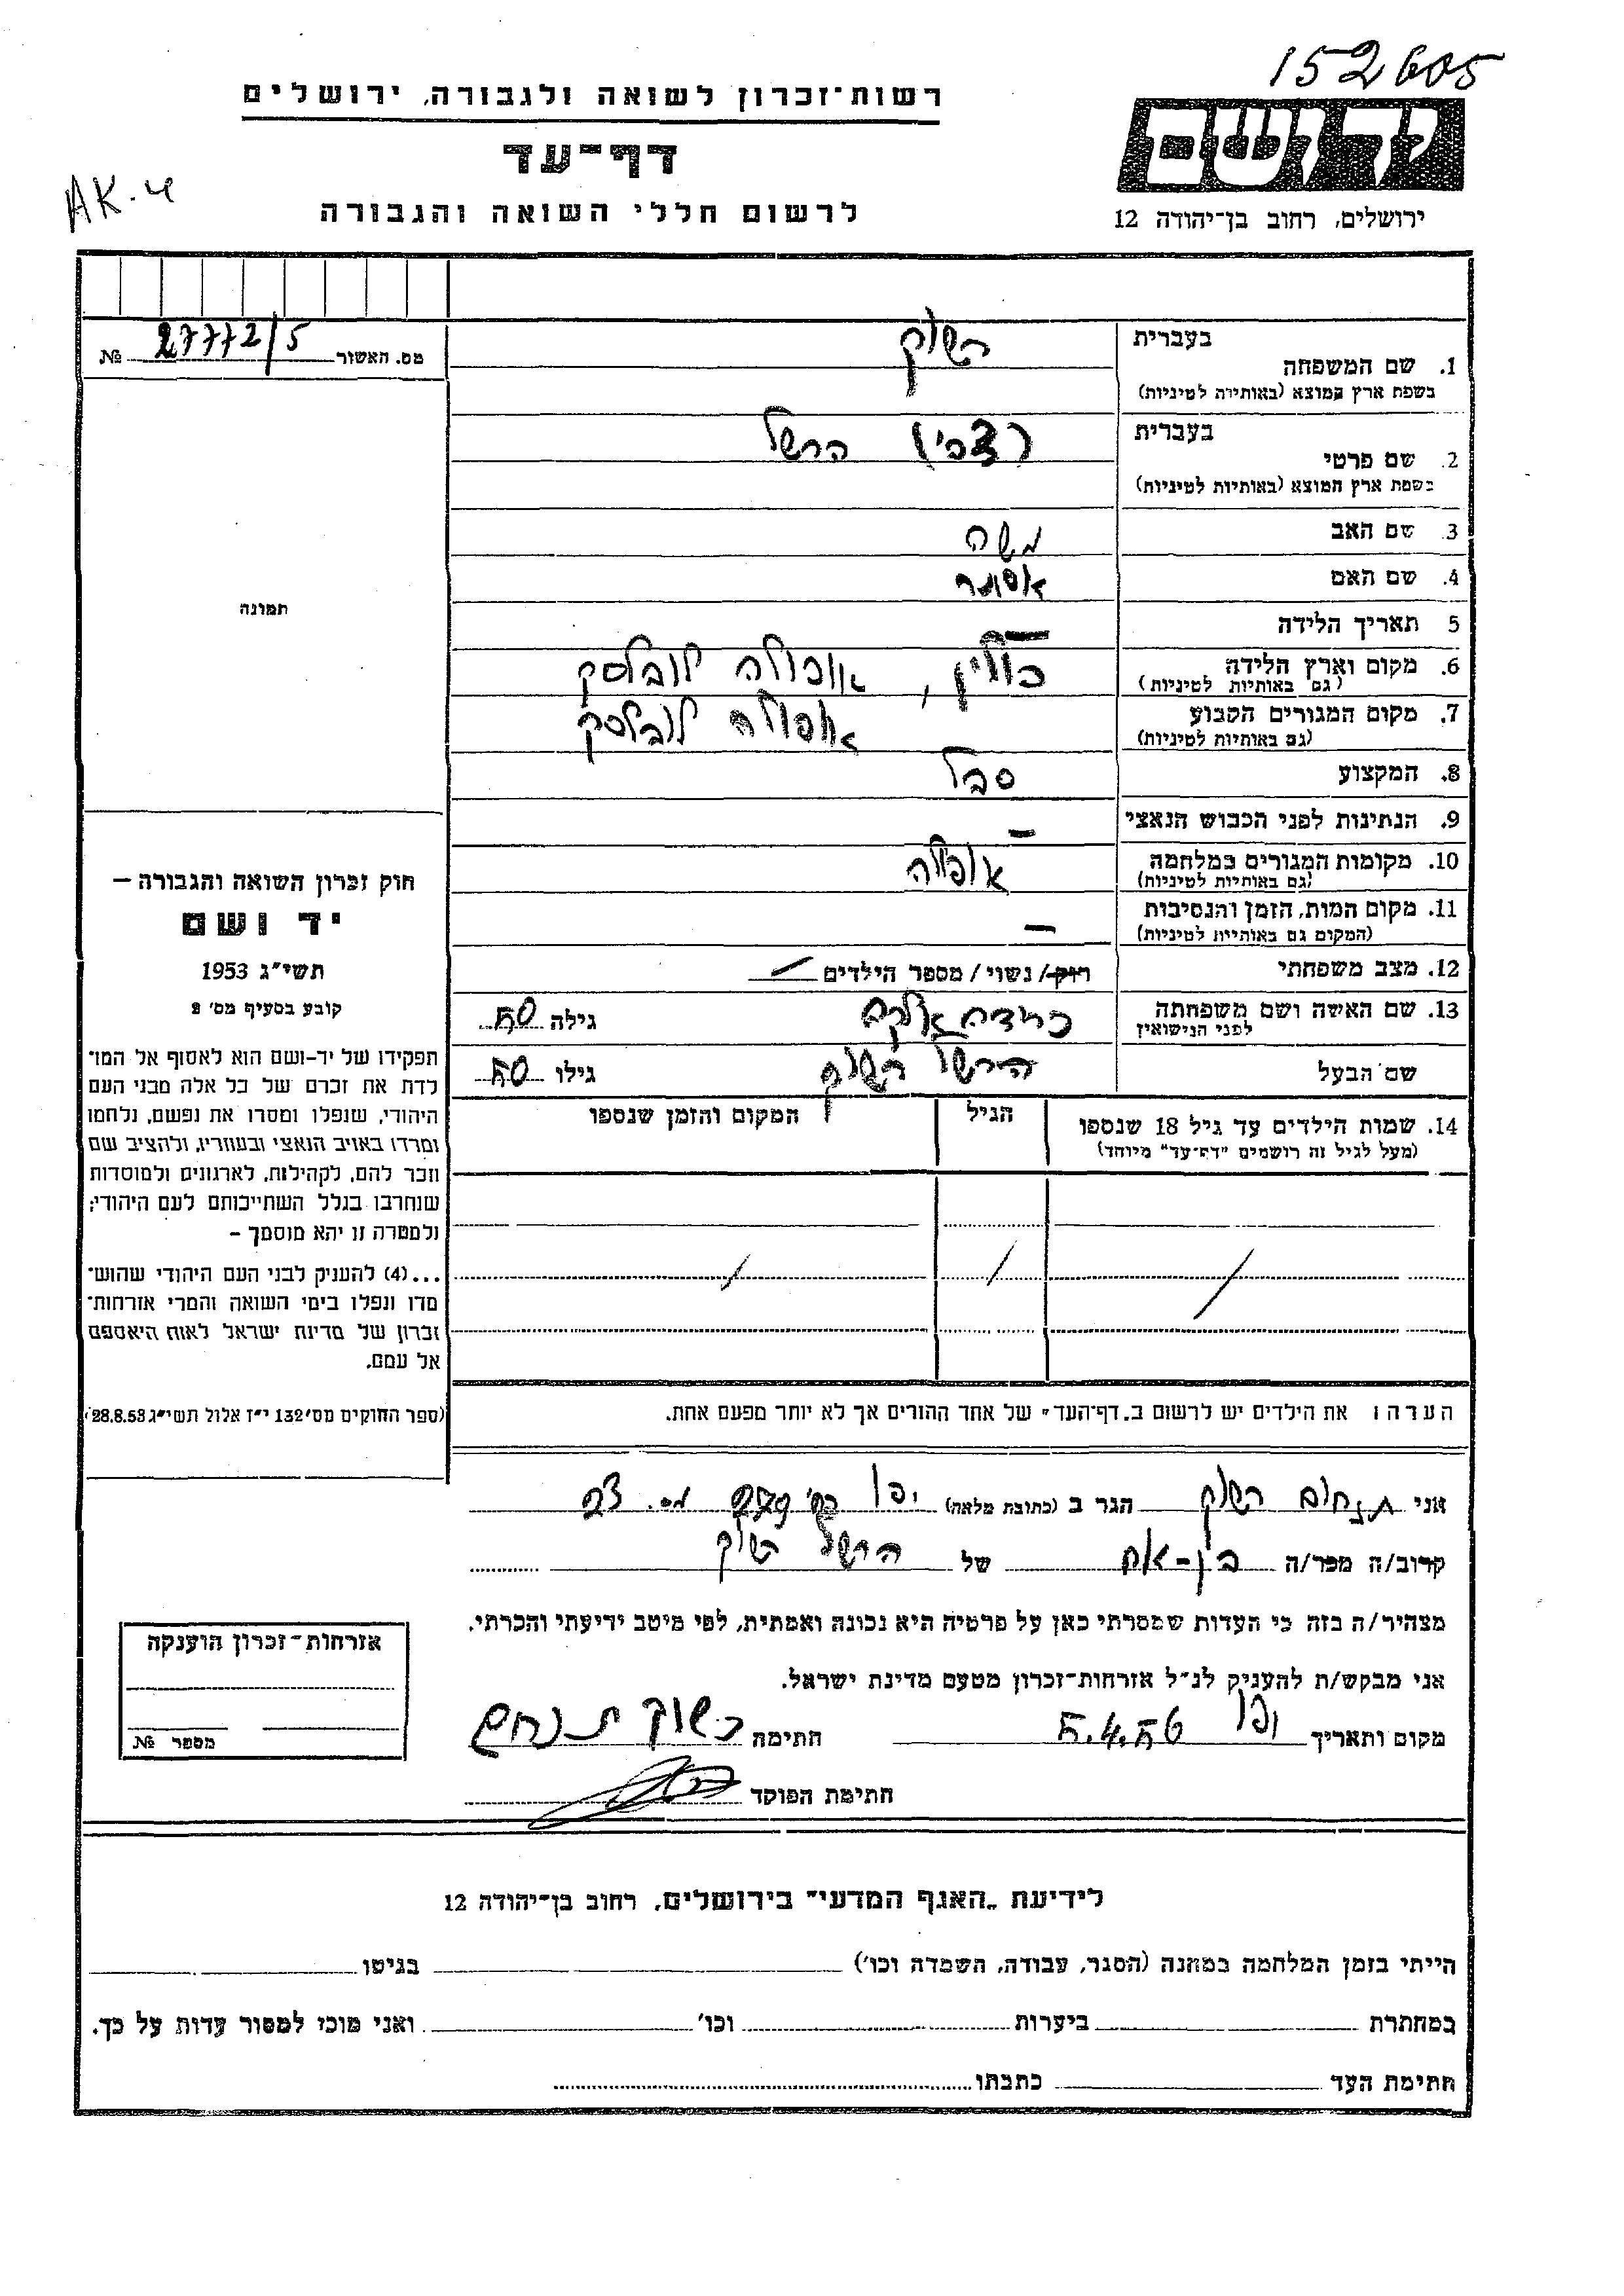 152605
רשות־זכרון לשואה ולגבורה, ירושלים
יד ושם
דף־עד
AK-4
לרשום חללי השואה והגבורה
ירושלים, רחוב בן־יהודה 12
מס. האשור 27772/5 №
בעברית
1. שם המשפחה
בשפת ארץ המוצא (באותיות לטיניות)
בעברית (צבי) הרשל
2. שם פרטי
בשפת ארץ המוצא (באותיות לטיניות)
3 שם האב משה
4. שם האם אסתר
תמונה
5 תאריך הלידה —
6. מקום וארץ הלידה פולין, אופולה לובלסק
(גם באותיות לטיניות)
7. מקום המגורים הקבוע אופולה לובלסק
(גם באותיות לטיניות)
8. המקצוע סבל
9. הנתינות לפני הכבוש הנאצי —
10. מקומות המגורים במלחמה אופולה
(גם באותיות לטיניות)
11. מקום המות, הזמן והנסיבות —
(המקום גם באותיות לטיניות)
12. מצב משפחתי רוק/ נשוי / מספר הילדים
13. שם האשה ושם משפחתה גילה 50
לפני הנישואין
שם הבעל הרשל גילו 50
14. שמות הילדים עד גיל 18 שנספו הגיל המקום והזמן שנספו
(מעל לגיל זה רושמים "דף־עד" מיוחד)
חוק זכרון השואה והגבורה —
יד ושם
תשי"ג 1953
קובע בסעיף מס' 2
תפקידו של יד-ושם הוא לאסוף אל המו־
לדת את זכרם של כל אלה מבני העם
היהודי, שנפלו ומסרו את נפשם, נלחמו
ומרדו באויב הנאצי ובעוזריו, ולהציב שם
וזכר להם, לקהילות, לארגונים ולמוסדות
שנחרבו בגלל השתייכותם לעם היהודי;
ולמטרה זו יהא מוסמך –
...(4) להעניק לבני העם היהודי שהוש־
מדו ונפלו בימי השואה והמרי אזרחות־
זכרון של מדינת ישראל לאות היאספם
אל עמם.
(ספר החוקים מס' 132 י"ז אלול תשי"ג 28.8.53)
הערה: את הילדים יש לרשום ב„דף־העד" של אחד ההורים אך לא יותר מפעם אחת.
אני תנחום הגר ב (כתובת מלאה) יפו מס. 23
קרוב/ה מכר/ה בן-אח של הרשל
מצהיר/ה בזה כי העדות שמסרתי כאן על פרטיה היא נכונה ואמתית, לפי מיטב ידיעתי והכרתי.
אני מבקש/ת להעניק לנ"ל אזרחות־זכרון מטעם מדינת ישראל.
מקום ותאריך יפו 5.4.56 חתימה תנחום
חתימת הפוקד
אזרחות־זכרון הוענקה
מספר №
לידיעת „האגף המדעי" בירושלים, רחוב בן־יהודה 12
הייתי בזמן המלחמה במחנה (הסגר, עבודה, השמדה וכו') בגיטו
במחתרת ביערות וכו' ואני מוכן למסור עדות על כך.
חתימת העד כתבתו